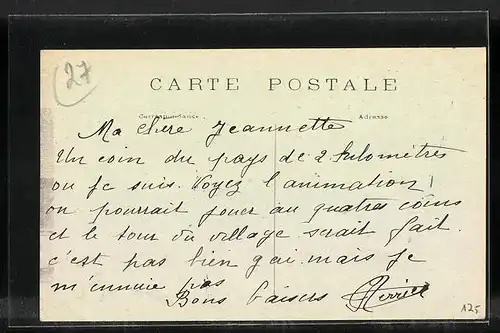 27
CARTE POSTALE
Correspondance.
Adresse
Ma chere Jeannette
Un coin du pays de 2 kulomètres
ou je suis. Voyez l'animation!
on pourrait jouer au quatres coins
et le tour du village serait fait.
c'est pas bien gai mais je
m'ennuie pas
Bons baisers
125